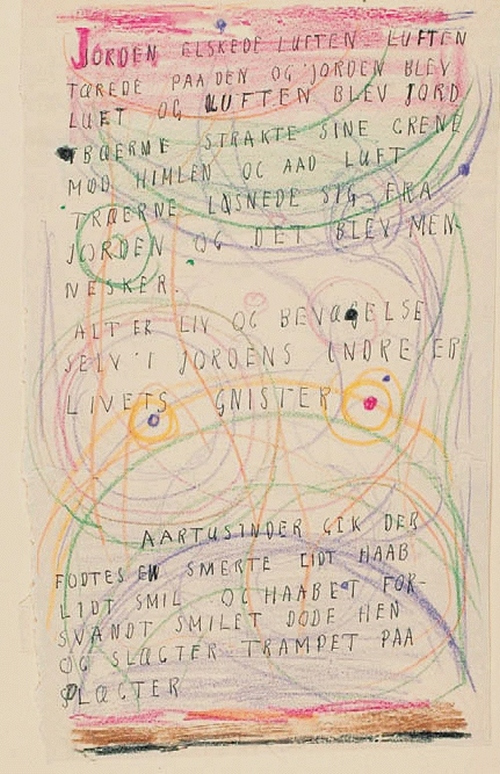 JORDEN ELSKEDE LUFTEN LUFTEN
TÆREDE PAA DEN OG JORDEN BLEV
LUFT OG LUFTEN BLEV JORD
TRÆERNE STRAKTE SINE GRENE
MOD HIMLEN OG AAD LUFT
TRÆERNE LØSNEDE SIG FRA
JORDEN OG DET BLEV MEN-
NESKER.
ALT ER LIV OG BEVÆGELSE
SELV I JORDENS INDRE ER
LIVETS GNISTER
AARTUSINDER GIK DER
FØDTES EN SMERTE LIDT HAAB
LIDT SMIL OG HAABET FOR-
SVANDT SMILET DØDE HEN
OG SLÆGTER TRAMPET PAA
SLÆGTER